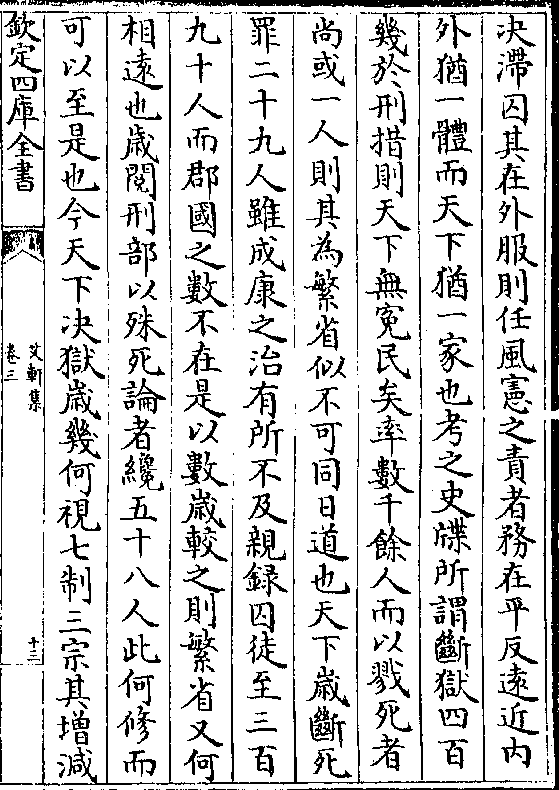 决滯囚其在外服則任風憲之責者務在平反遠近内
外猶一體而天下猶一家也考之史牒所謂斷獄四百
幾於刑措則天下無冤民矣率數千餘人而以戮死者
尚或一人則其為繁省似不可同日道也天下歲斷死
罪二十九人雖成康之治有所不及親録囚徒至三百
九十人而郡國之數不在是以數歲較之則繁省又何
相遠也歲閱刑部以殊死論者纔五十八人此何修而
可以至是也今天下决獄歲幾何視七制三宗其增減
欽定四庫全書
艾軒集
卷三
十三